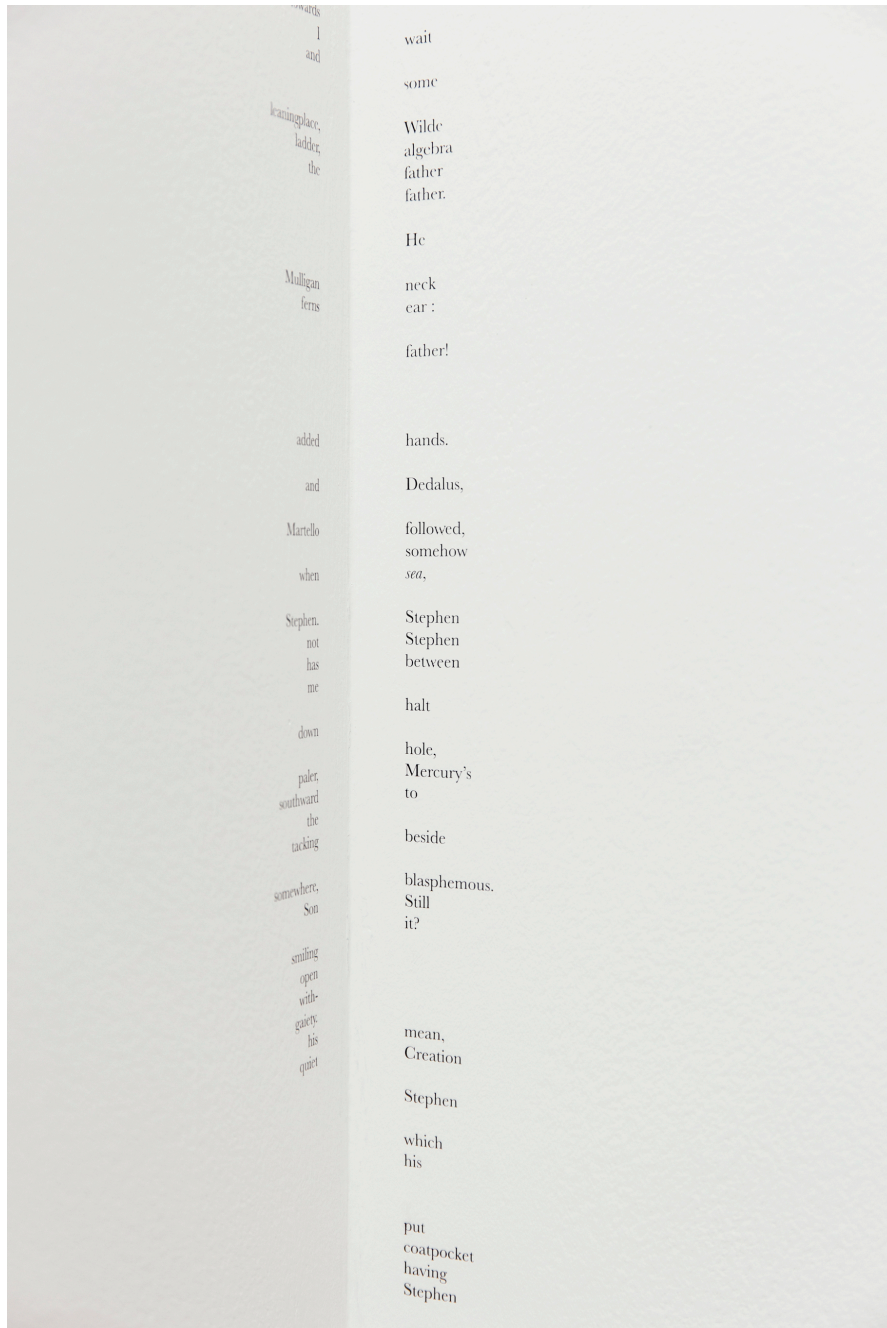 and
leaningplace,
ladder,
the
Mulligan
ferns
added
and
Martello
when
Stephen.
not
has
me
down
paler,
southward
the
tacking
somewhere,
Son
smiling
open
with-
gaiety.
his
quiet
wait
some
Wilde
algebra
father
father.
He
neck
ear :
father!
hands.
Dedalus,
followed,
somehow
sea,
Stephen
Stephen
between
halt
hole,
Mercury’s
to
beside
blasphemous.
Still
it?
mean,
Creation
Stephen
which
his
put
coatpocket
having
Stephen